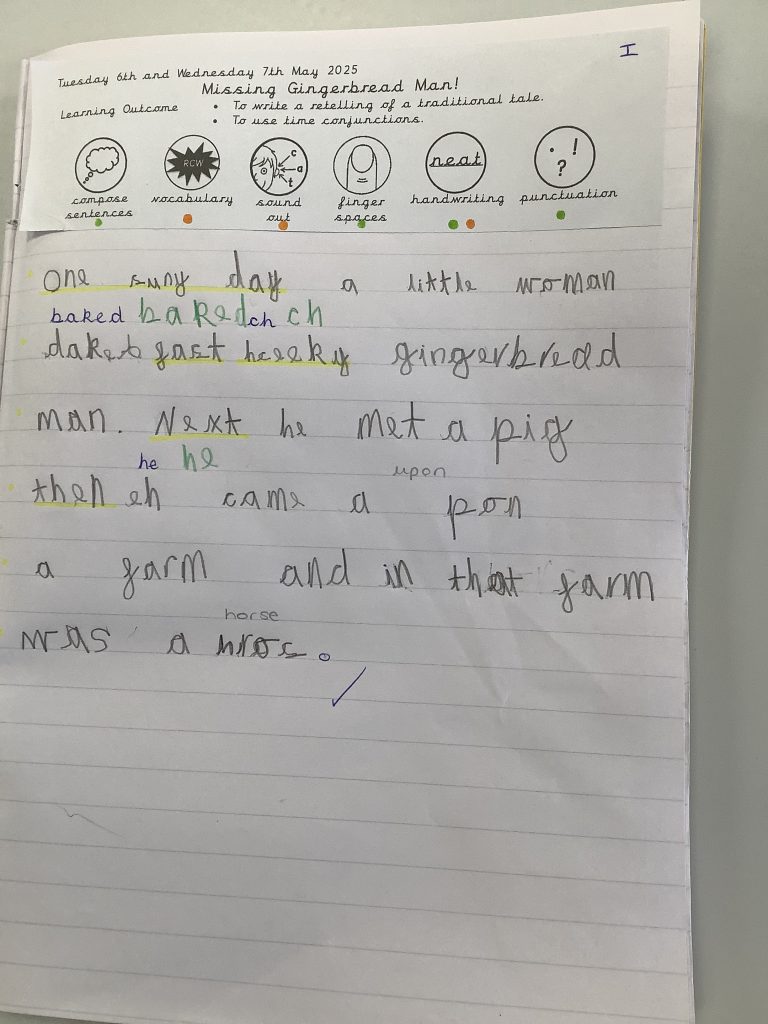 I
Tuesday 6th and Wednesday 7th May 2025
Missing Gingerbread Man!
Learning Outcome
• To write a retelling of a traditional tale.
• To use time conjunctions.
RCW
c
a
t
neat
. ! ?
compose sentences
vocabulary
sound out
finger spaces
handwriting
punctuation
One suny day a little woman
baked baked ch ch
daked fast heeky gingerbread
man. Next he met a pig
he he
upon
then eh came a pon
a farm and in that farm
horse
was a hros.